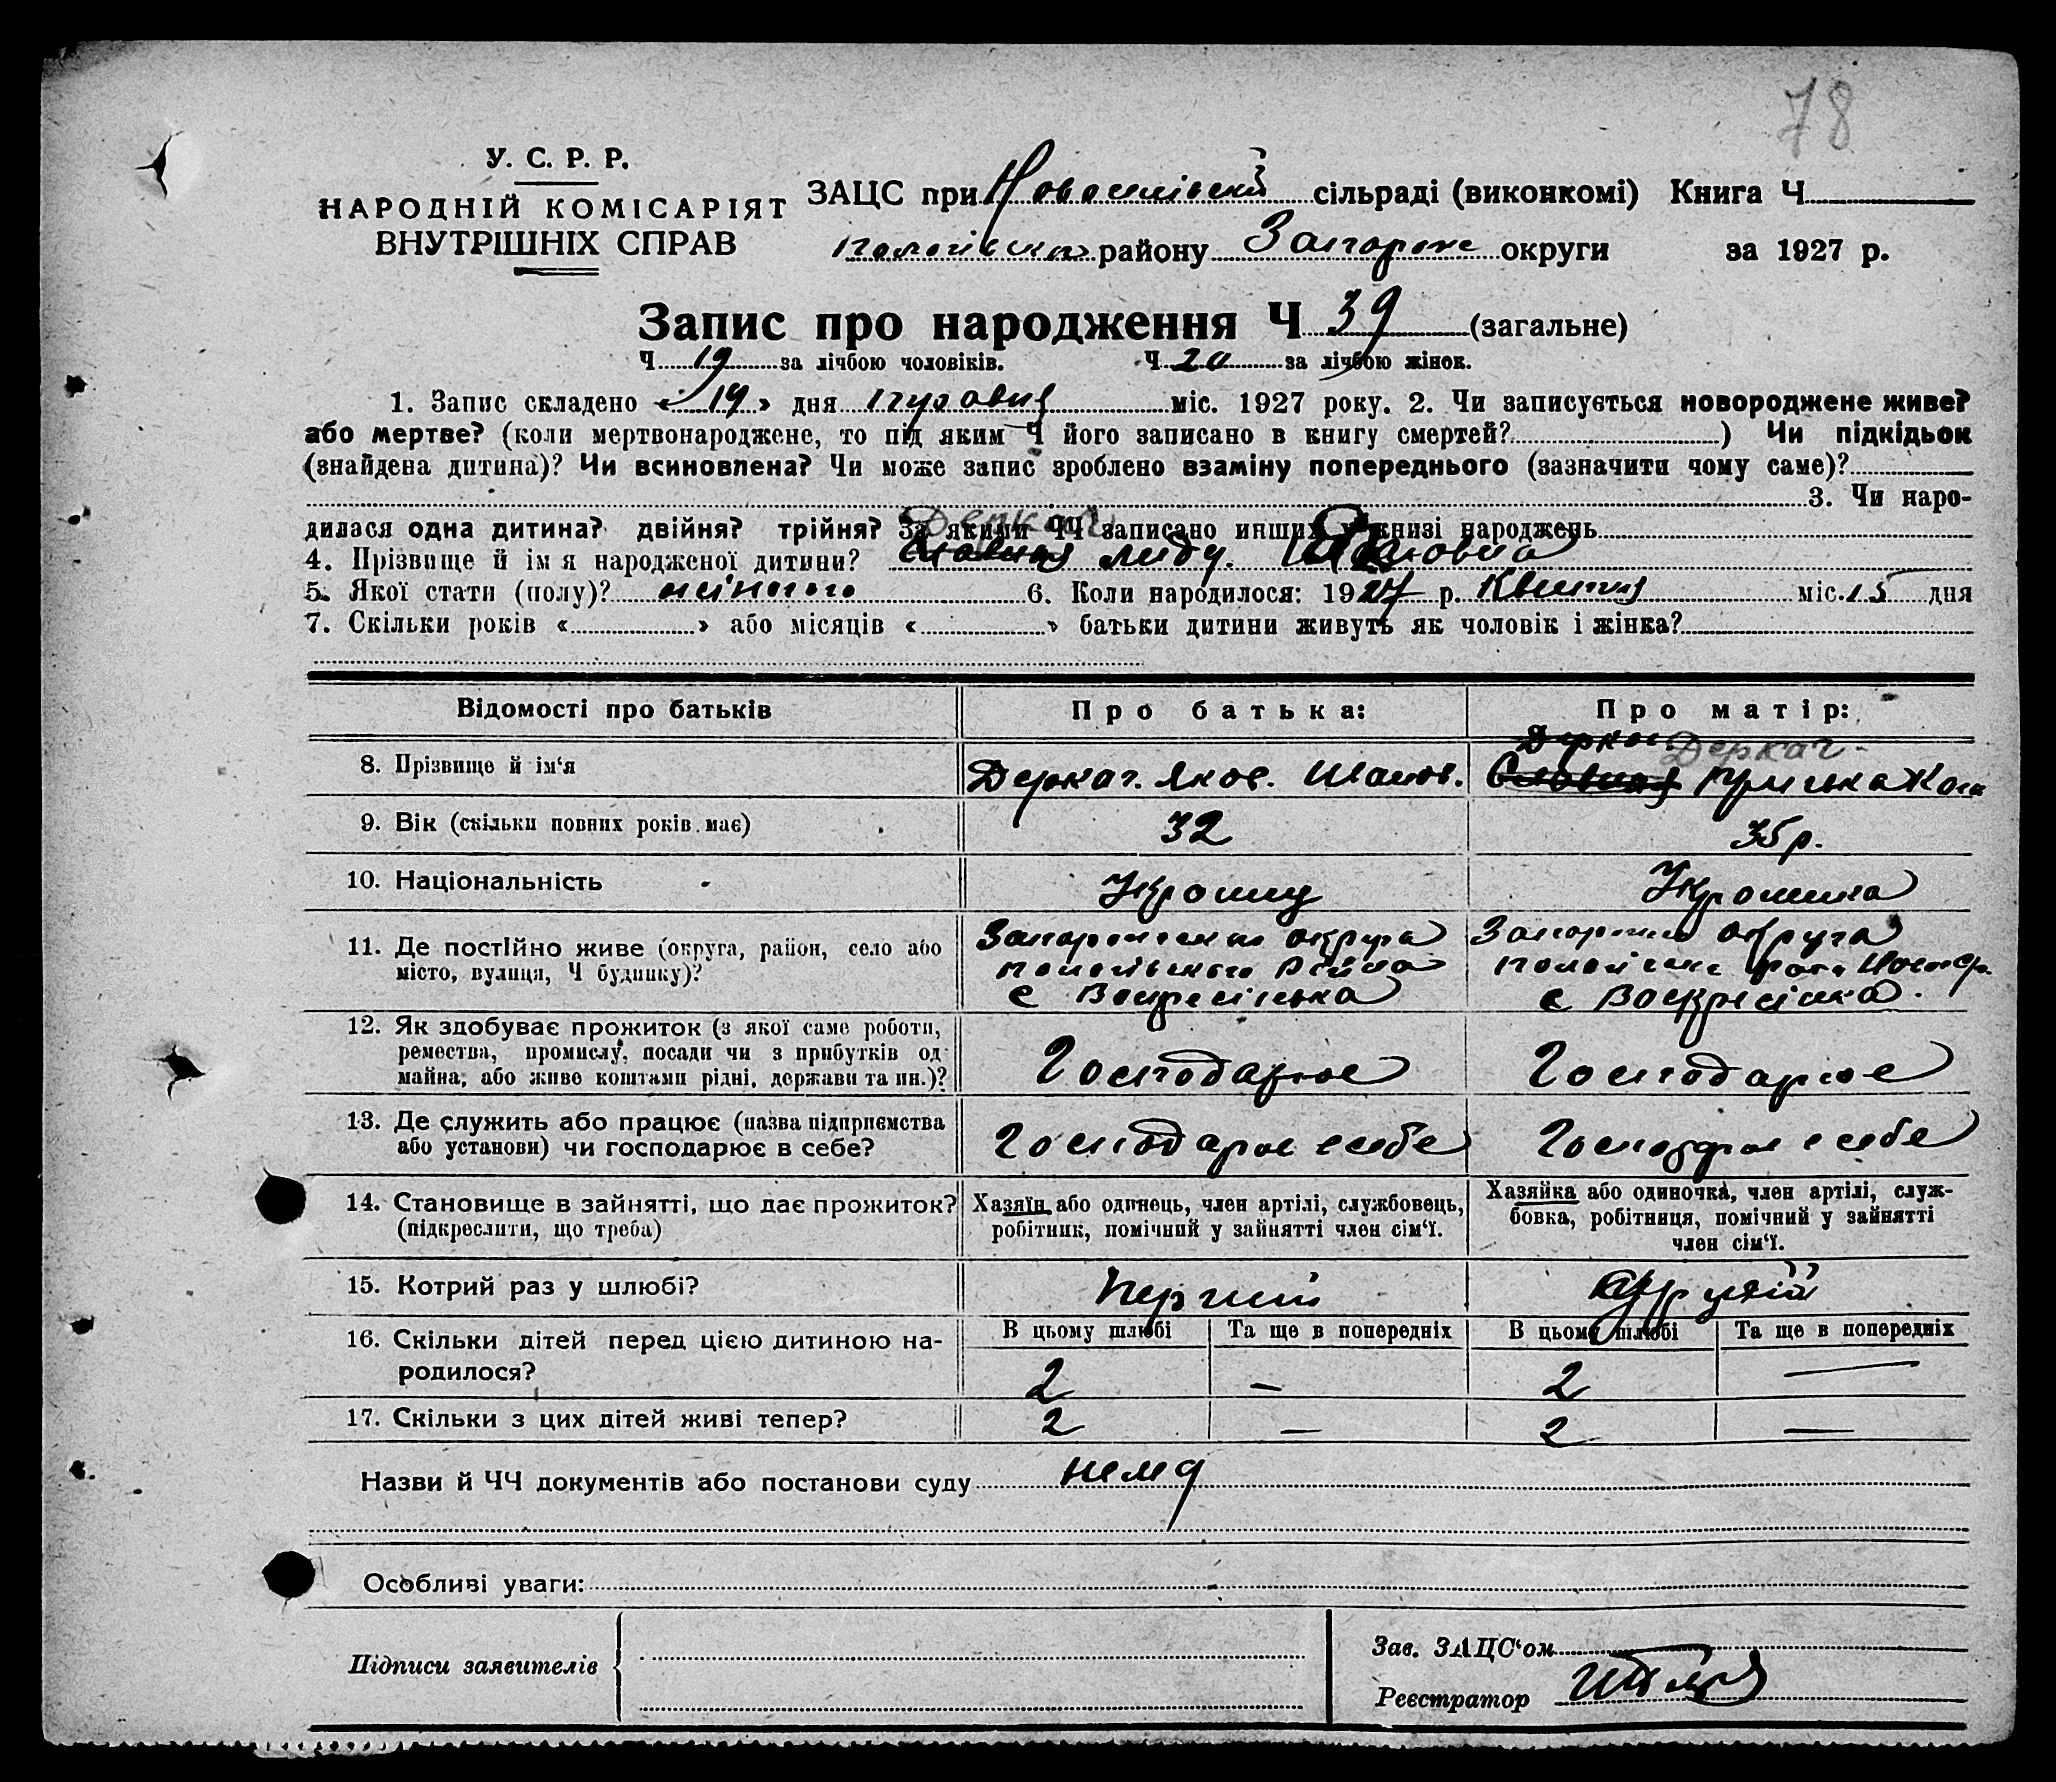 78
У. С. Р. Р.
НАРОДНІЙ КОМІСАРІЯТ
ВНУТРІШНІХ СПРАВ
ЗАЦС при Новоселівскій сільраді (виконкомі) Книга Ч
району Запорож округи за 1927 р.
Запис про народження Ч 39 (загальне)
Ч 19 за лічбою чоловіків. Ч 20 за лічбою жінок.
1. Запис складено « 19 » дня міс. 1927 року. 2. Чи записується новороджене живе?
або мертве? (коли мертвонароджене, то під яким Ч його записано в книгу смертей? ) Чи підкідьок
(знайдена дитина)? Чи всиновлена? Чи може запис зроблено взаміну попереднього (зазначити чому саме)?
3. Чи наро-
дилася одна дитина? двійня? трійня? За якими ЧЧ записано инших у книзі народжень
Деркач
4. Прізвище й ім я народженої дитини? Лиду.
5. Якої стати (полу)? жіночого 6. Коли народилося: 1927 р. Квитня міс. 15 дня
7. Скільки років « » або місяців « » батьки дитини живуть як чоловік і жінка?
Відомості про батьків
Про батька:
Про матір:
8. Прізвище й ім'я
Деркач. Яков. Иванов.
Деркач
Деркач
9. Вік (скільки повних років має)
32
35 р.
10. Національність
Украинц
Украинка
11. Де постійно живе (округа, район, село або
місто, вулиця, Ч будинку)?
округа
с
округа
с
12. Як здобуває прожиток (з якої саме роботи,
ремества, промислу, посади чи з прибутків од
майна, або живе коштами рідні, держави та ин.)?
Господарює
Господарює
13. Де служить або працює (назва підприємства
або установи) чи господарює в себе?
Господарює в себе
Господарює в себе
14. Становище в зайнятті, що дає прожиток?
(підкреслити, що треба)
Хазяїн або одинець, член артілі, службовець,
робітник, помічний у зайнятті член сім'ї.
Хазяйка або одиночка, член артілі, служ-
бовка, робітниця, помічний у зайнятті
член сім'ї.
15. Котрий раз у шлюбі?
Перший
другий
16. Скільки дітей перед цією дитиною на-
родилося?
В цьому шлюбі
Та ще в попередніх
В цьому шлюбі
Та ще в попередніх
2
—
2
—
17. Скільки з цих дітей живі тепер?
2
—
2
—
Назви й ЧЧ документів або постанови суду нема
Особливі уваги:
Підписи заявителів
Зав. ЗАЦС'ом
Реєстратор